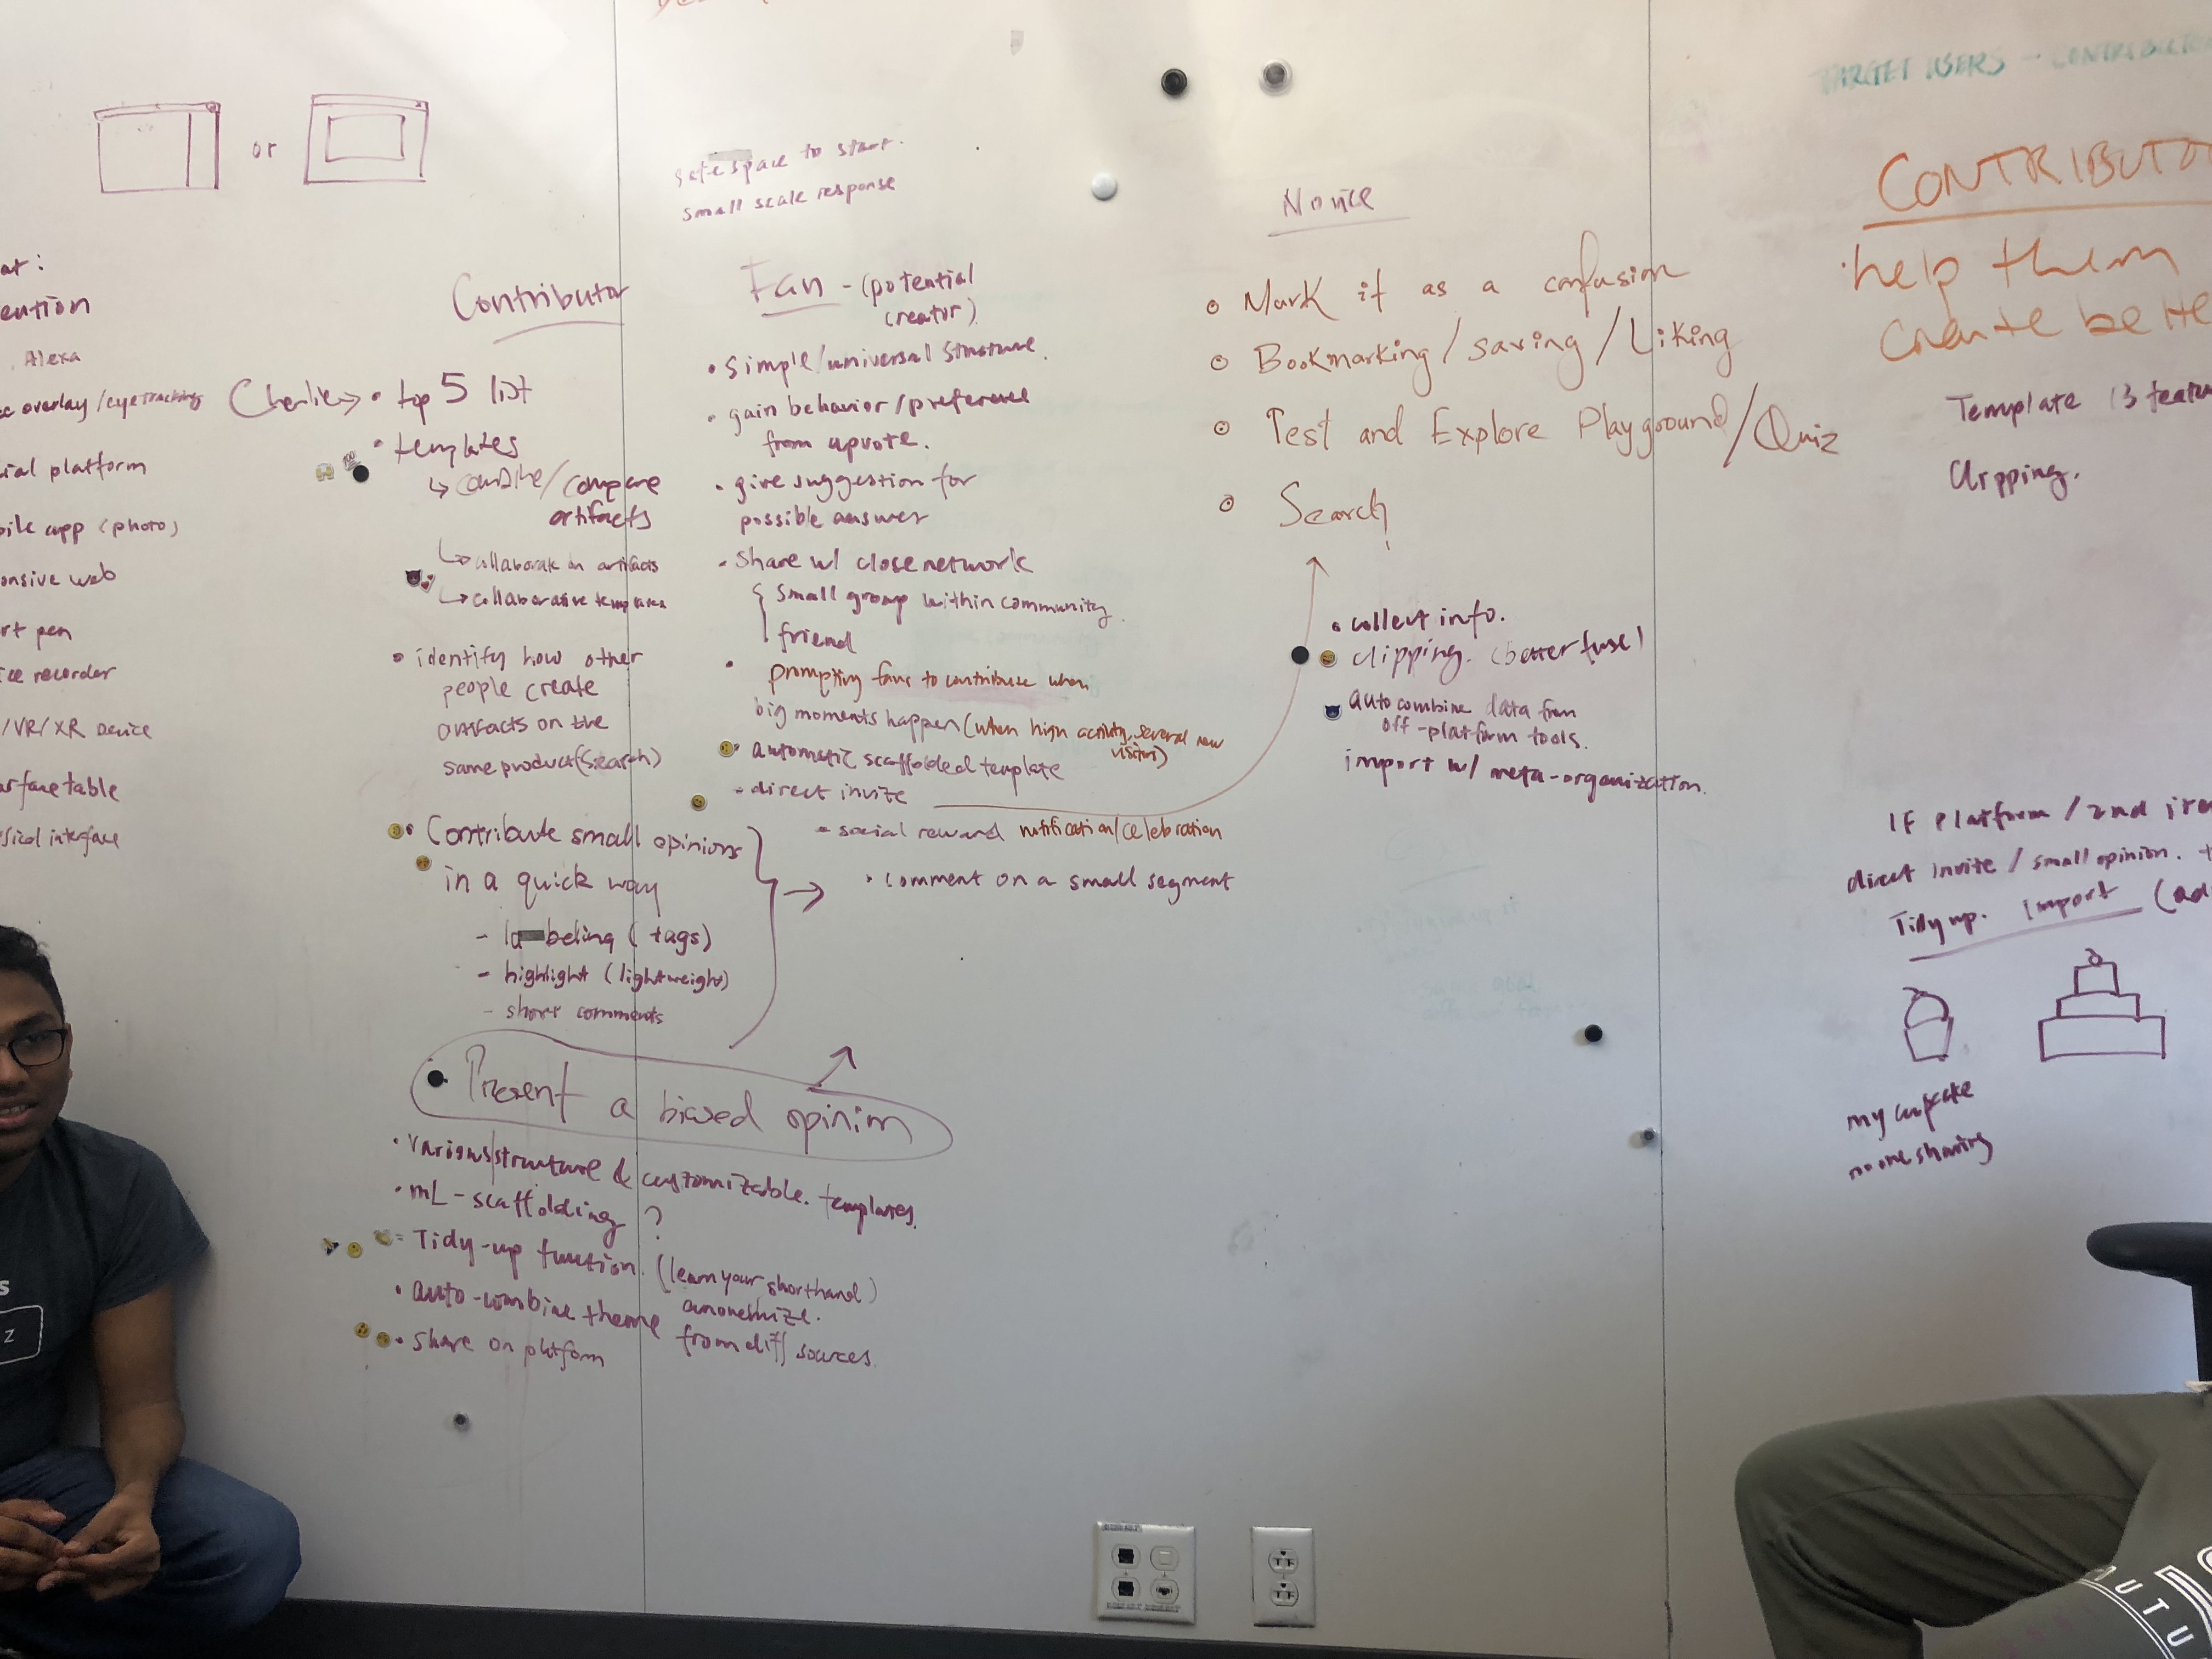 TARGET USERS - CONTRIBUTO
or
safe space to start.
small scale response
at:
ention
Alexa
overlay / eyetracking
ial platform
ile app (photo)
onsive web
rt pen
ce recorder
/VR/XR Device
rface table
sical interface
Contributor
Charlie → • top 5 list
• templates
↳ combine / compare
artifacts
↳ collaborate on artifacts
↳ collaborative templates
• identify how other
people create
artifacts on the
same product (search)
• Contribute small opinions
in a quick way
- labeling (tags)
- highlight (lightweight)
- short comments
• Present a biased opinion
• various structure & customizable templates.
• ML-scaffolding ?
• Tidy-up function. (learn your shorthand)
• auto-combine theme
from diff sources.
• share on platform
Fan - (potential
creator)
• simple/universal structure.
• gain behavior/preference
from upvote.
• give suggestion for
possible answer
• share w/ close network
small group within community.
friend
• prompting fans to contribute when
big moments happen (when high activity, several new
visitors)
• automatic scaffolded template
- direct invite
• social reward notification/celebration
• comment on a small segment
Novice
Mark it as a confusion
Bookmarking / saving / Liking
Test and Explore Playground / Quiz
Search
• collect info.
• clipping. (better fuse)
auto combine data from
off-platform tools.
import w/ meta-organization.
CONTRIBUTO
• help them
create bette
Template (3 featur
Clipping.
IF Platform / 2nd ite
direct invite / small opinion.
Tidy up. Import (ad
my cupcake
no one sharing
S
Z
U T U